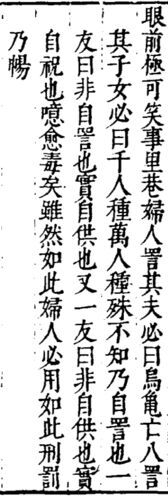 眼前極可笑事里巷婦人詈其夫必曰烏龜亡八詈
其子女必曰千人種萬人種殊不知乃自詈也一
友曰非自詈也實自供也又一友曰非自供也實
自祝也噫愈毒矣雖然如此婦人必用如此刑罰
乃暢